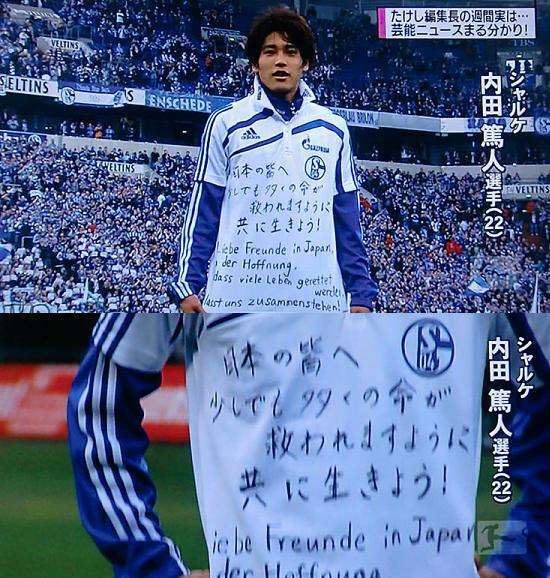 たけし編集長の週間実は…
芸能ニュースまる分かり!
TBS
VELTINS
ENSCHEDE
VELTINS
VELTINS
adidas
GAZPROM
シャルケ
内田 篤人選手(22)
日本の皆へ
少しでも多くの命が
救われますように
共に生きよう!
Liebe Freunde in Japan,
der Hoffnung,
dass viele Leben gerettet
werden
lasst uns zusammenstehen!
シャルケ
内田 篤人選手(22)
日本の皆へ
少しでも多くの命が
救われますように
共に生きよう!
iebe Freunde in Japan
der Hoffnung